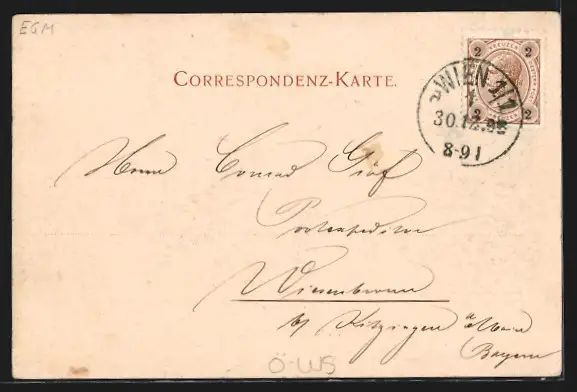 EGM
CORRESPONDENZ-KARTE.
2 KREUZER 2
2 2
WIEN 1/1
30.12.98
8-9 V
Herrn Conrad Graf
Postexpeditor
Wiesenbronn
b/ Kitzingen a/Main
Bayern
Ö-WS